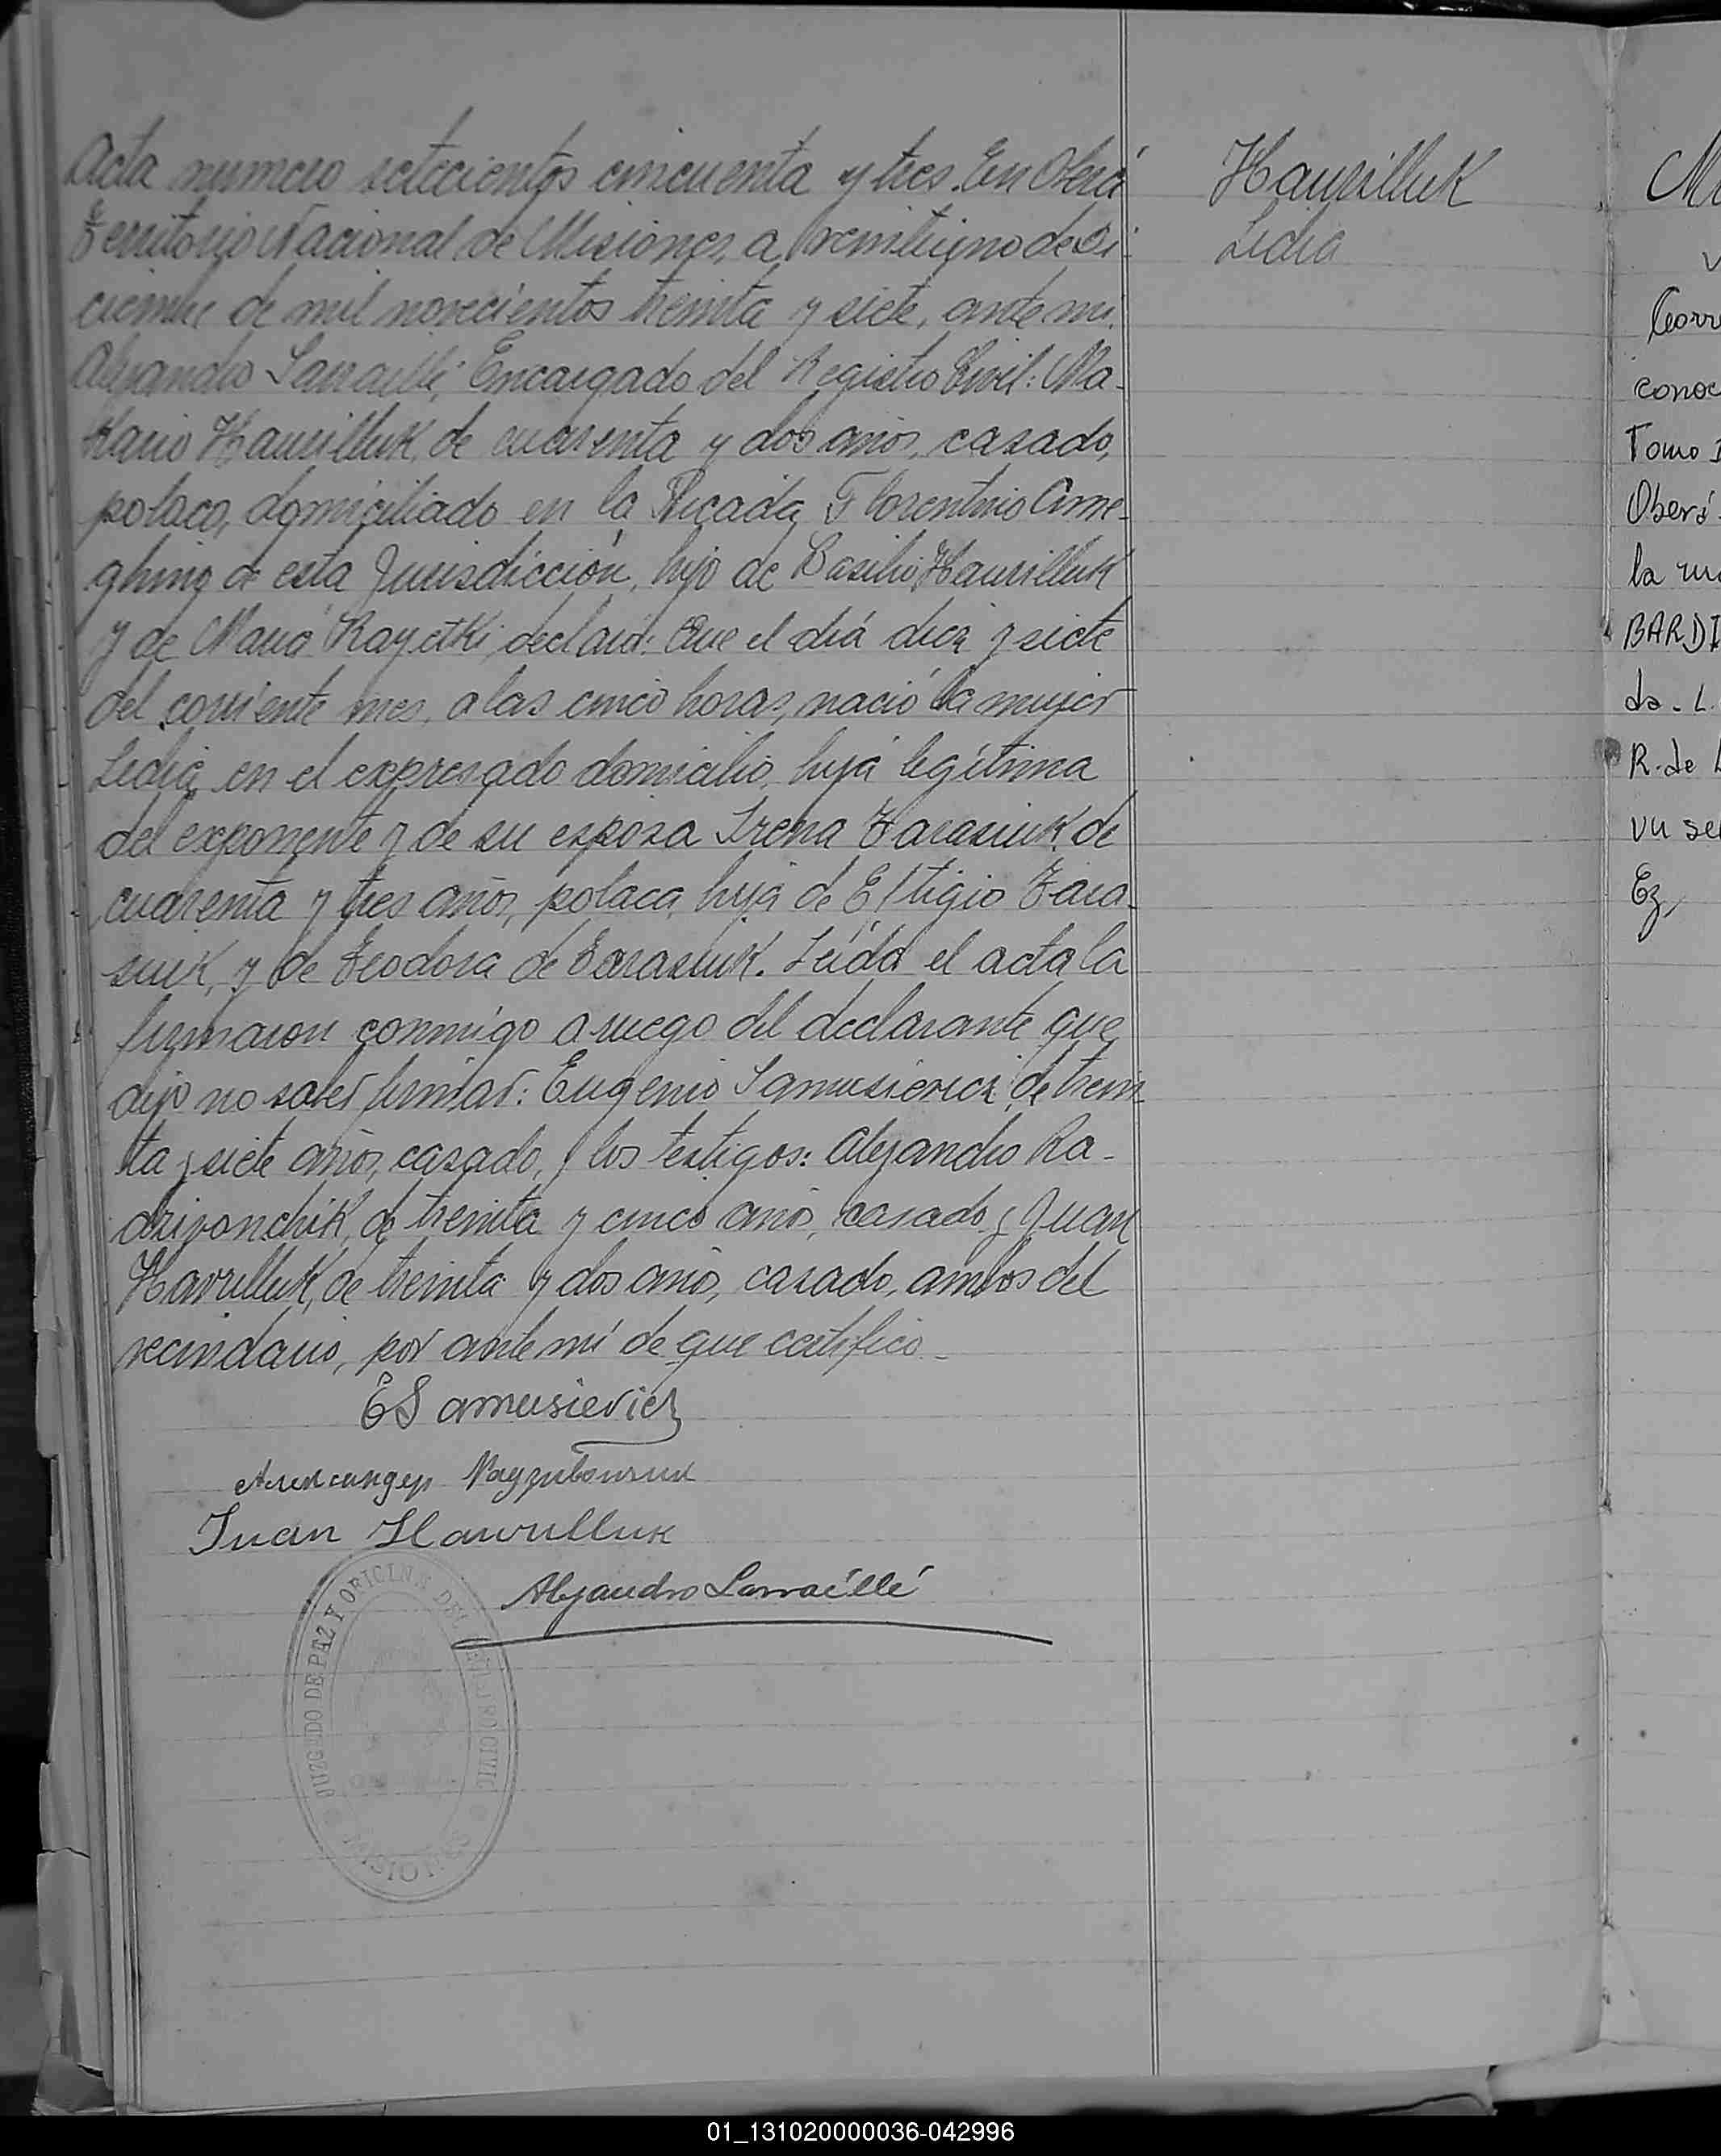 Acta numero setecientos cincuenta y tres. En Oberá
Territorio Nacional de Misiones, a veintiuno de Di-
ciembre de mil novecientos treinta y siete, ante mi,
Alejandro Larraillé, Encargado del Registro Civil: Ma-
kario Hawrilluk, de cuarenta y dos años, casado,
polaco, domiciliado en la Picada Florentino Ame-
ghino de esta Jurisdicción, hijo de Basilio Hawrilluk
y de Maria declaró: Que el diá diez y siete
del corriente mes, a las cinco horas, nació la mujer
Lidia en el expresado domicilio, hija legítima
del exponente y de su esposa Irena Tarasiuk de
cuarenta y tres años, polaca, hija de Tara-
siuk, y de Teodora de Tarasiuk. Leida el acta la
firmaron conmigo a ruego del declarante que
dijo no saber firmar: Eugenio Samusievicz, de trein
ta y siete años, casado, y los testigos: Alejandro Ra-
dzivonchik, de treinta y cinco años, casado y Juan
Havrilluk, de treinta y dos años, casado, ambos del
vecindario, por ante mi de que certifico.
ESamusievicz
Juan Hawrulluk
Alejandro Larraillé
JUZGADO DE PAZ Y OFICINA DEL REGISTRO CIVIL
MISIONES
Hawrilluk
Lidia
conoc
Tomo
Oberá
la
BARDI
da. L.
R. de
vu
01_131020000036-042996